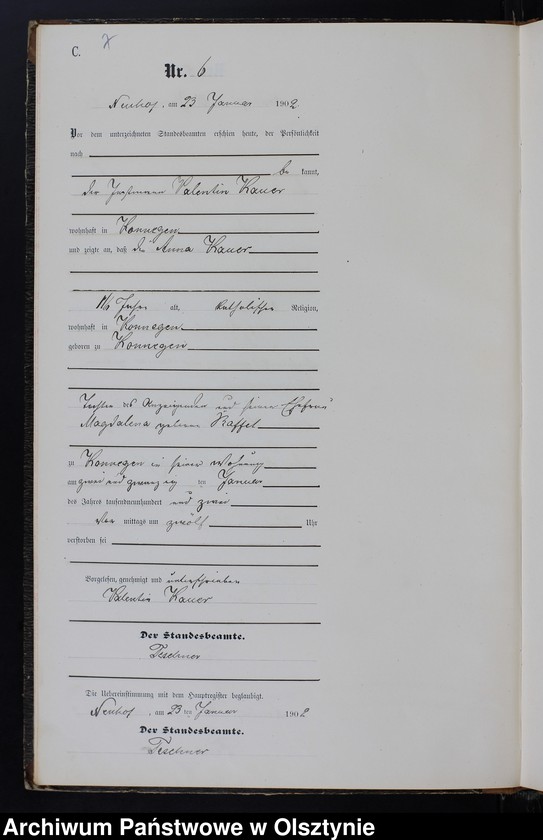 C.
Nr. 6
Neuhof, am 23 Januar 1902
Vor dem unterzeichneten Standesbeamten erschien heute, der Persönlichkeit
nach
be kannt,
der Instmann Valentin Kauer
wohnhaft in Konnegen
und zeigte an, daß die Anna Kauer
alt, katholischer Religion,
wohnhaft in Konnegen
geboren zu Konnegen
Tochter des Anzeigenden und seiner Ehefrau
Magdalena geborene Raffel
zu Konnegen in seiner Wohnung
am zwei und zwanzig ten Januar
des Jahres tausendneunhundert und zwei
Vor mittags um zwölf Uhr
verstorben sei
Vorgelesen, genehmigt und unterschrieben
Valentin Kauer
Der Standesbeamte.
Teschner
Die Uebereinstimmung mit dem Hauptregister beglaubigt.
Neuhof, am 23 ten Januar 1902
Der Standesbeamte.
Teschner
Archiwum Państwowe w Olsztynie